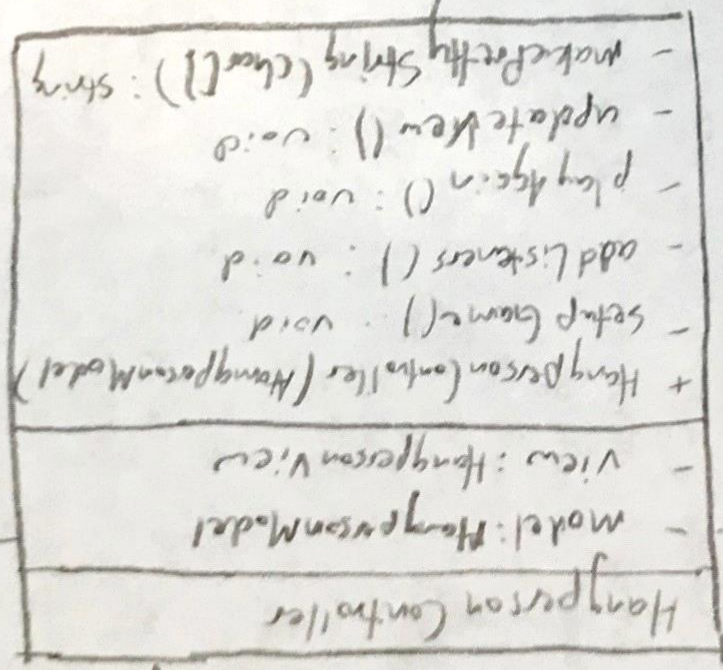 Hangperson Controller
- Model: HangpersonModel
- View: HangpersonView
+ HangpersonController (HangpersonModel)
- setupGame() : void
- addListeners() : void
- playAgain() : void
- updateView() : void
- makePrettyString (char[]) : String